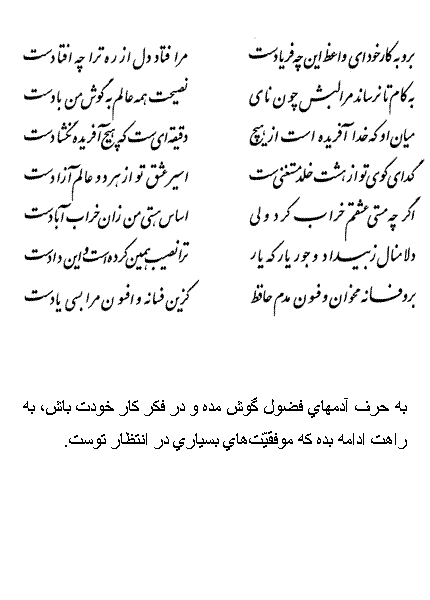 برو به کار خود ای واعظ این چه فریادست مرا فتاد دل از ره ترا چه افتادست
به کام تا نرساند مرا لبش چون نای نصیحت همه عالم به گوش من بادست
میان او که خدا آفریده است از هیچ دقیقه‌ای‌ست که هیچ آفریده نگشادست
گدای کوی تو از هشت خلد مستغنی‌ست اسیر عشق تو از هر دو عالم آزادست
اگر چه مستی عشقم خراب کرد ولی اساس هستی من زان خراب آبادست
دلا منال ز بیداد و جور یار که یار ترا نصیب همین کرده است و این دادست
برو فسانه مخوان و فسون مدم حافظ کزین فسانه و افسون مرا بسی یادست
به حرف آدمهاي فضول گوش مده و در فکر کار خودت باش، به
راهت ادامه بده که موفقیّت‌هاي بسیاري در انتظار توست.